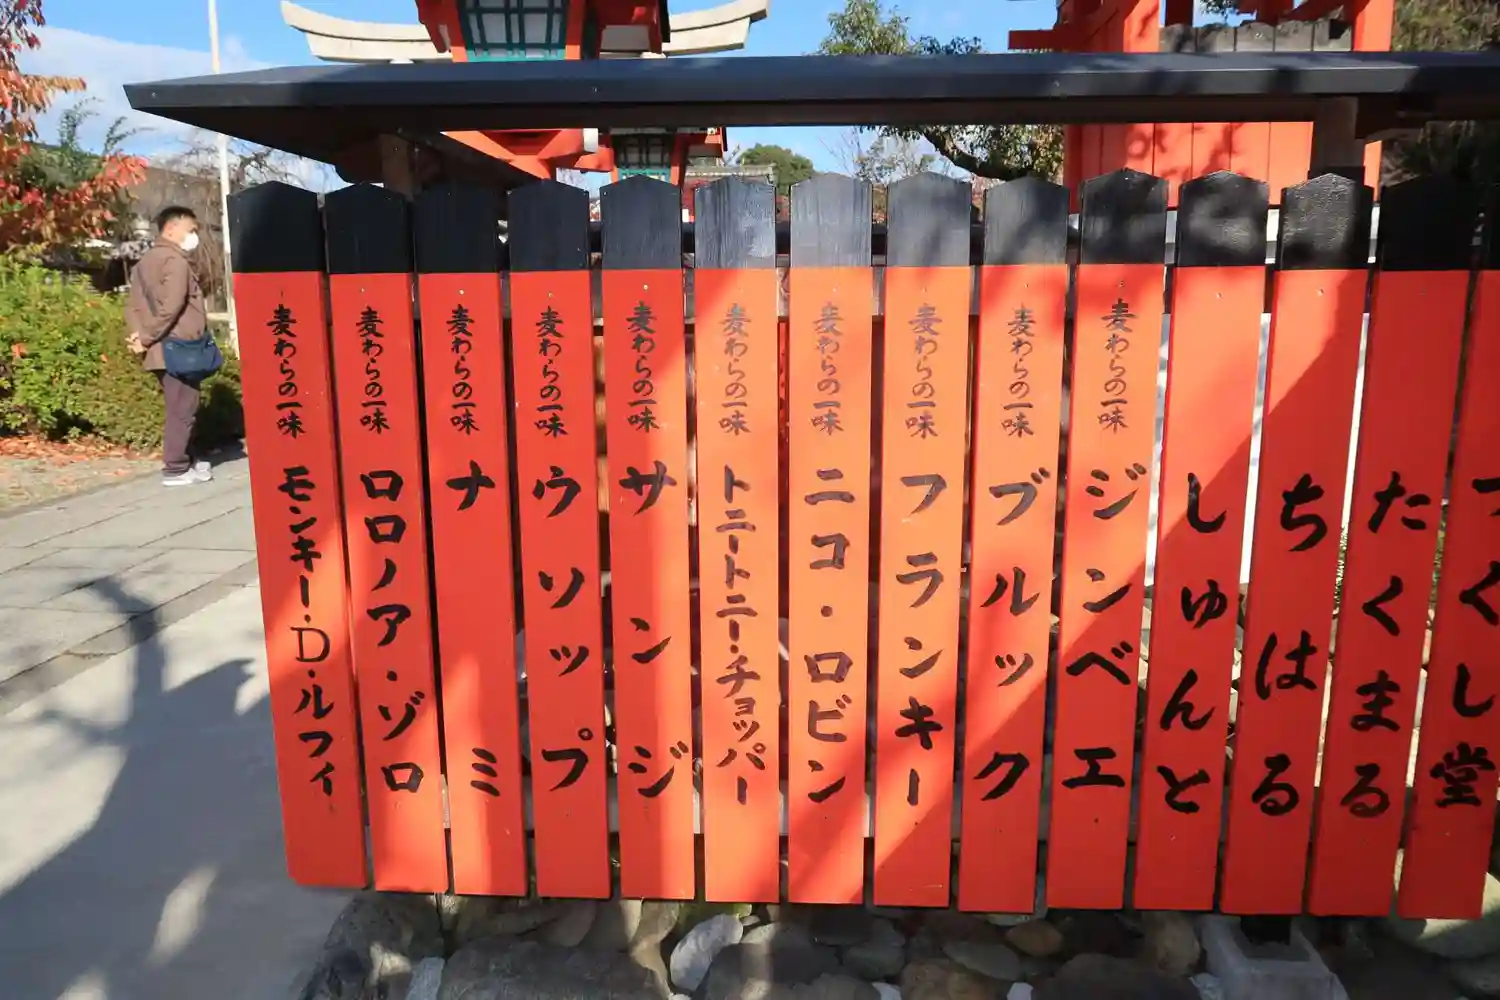 麦わらの一味 モンキー・D・ルフィ
麦わらの一味 ロロノア・ゾロ
麦わらの一味 ナミ
麦わらの一味 ウソップ
麦わらの一味 サンジ
麦わらの一味 トニートニー・チョッパー
麦わらの一味 ニコ・ロビン
麦わらの一味 フランキー
麦わらの一味 ブルック
麦わらの一味 ジンベエ
しゅんと
ちはる
たくまる
つくし堂